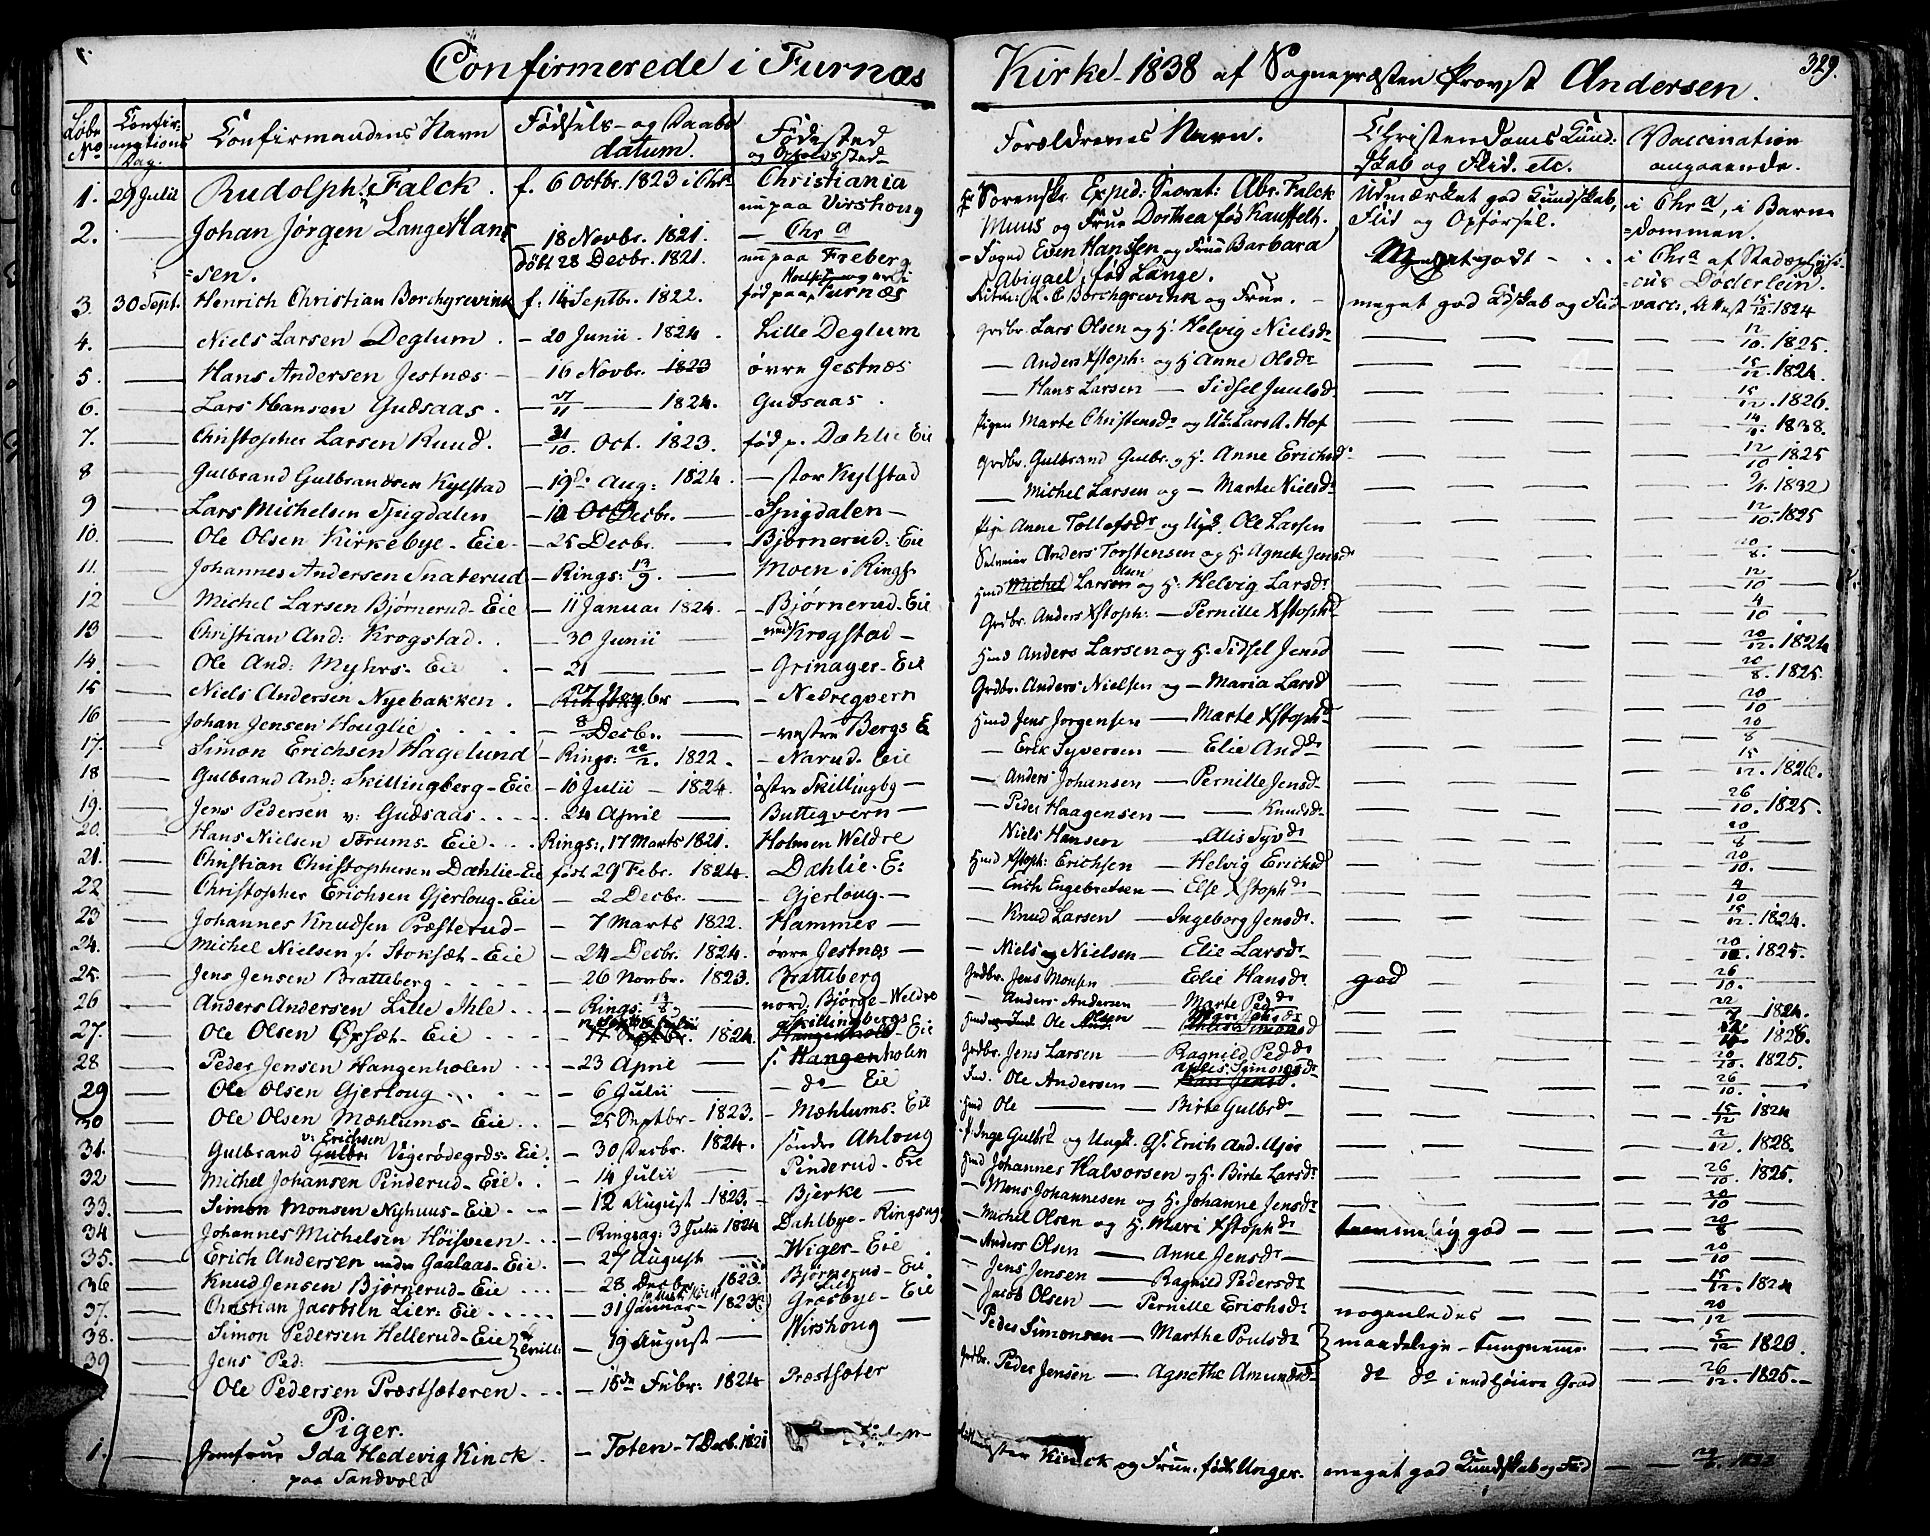 Confirmerede i Furnæs Kirke 1838 af Sognepræsten Provst Andersen.
329.
Løbe No
Confirmations Dag.
Confirmandens Navn
Fødsels- og Daabs datum.
Fødested og Opholdssted
Forældrenes Navn.
Christendoms Kundskab og Flid. etc.
Vaccination angaaende.
1. 29 Julii Rudolph Falck. f. 6 Octbr. 1823 i Chra Christiania nu paa Virshoug Sorenskr Exped: Secret: Abr. Falck Muus og Frue Dorthea fød Kauffeldt. Udmærket god Kundskab, Flid og Opførsel. i Chra, i Barndommen.
2. — Johan Jørgen Lange Hans=sen. 18 Novbr. 1821. døbt 28 Decbr. 1821. — Chra nu paa Freberg — Foged Even Hansen og Frue Barbara Abigael, fød Lange. Meget godt — i Chra af Stadsphysicus Døderlein.
3. 30 Sept. Henrich Christian Borchgrevink f. 14 Septbr. 1822. fød paa Furnæs Borchgrevink og Frue. — meget god Kdskab og Flid vacc. Attest 15/12 1824
4. — Niels Larsen Deglum. — 20 Junii. 1824. Lille Deglum Grdbr. Lars Olsen og H. Helvig Nielsdr — — — 12/10. 1825.
5. — Hans Andersen Jestnæs — 16 Novbr. 1823 øvre Jestnæs — Anders Xstoph: og H. Anne Olsdr — — — 15/12. 1824.
6. — Lars Hansen Gudsaas. — 27/11 — 1824. Gudsaas. — Hans Larsen — Sidsel Juulsd — — — 15/12. 1826.
7. — Christopher Larsen Ruud. — 31/10 Oct. 1823. fød p. Dæhlie Eie Pigen Marte Christensdr og Lars A. Hof — — — 1838.
8 — Gulbrand Gulbrandsen Kylstad — 19de Aug: 1824. — stor Kylstad Grdbr. Gulbrand Gulbr. og H. Anne Erichsdr — — — 12/10 1825
9 — Lars Michelsen Spigdalen — Decbr. — Spigdalen — — Michel Larsen og — Marte Nielsdr — — — 1832
10. — Ole Olsen Kirkebye-Eie — 25 Decbr. — Bjørnerud-Eie Pige Anne Tollefsdr og Ungk. Ole Larsen — — — 12/10. 1825
11. — Johannes Andersen Snaterud — Rings: 13/9. — Moen i Rings. Anders Torstensen og H. Agnete Jensdr — — — 20/8. —
12 — Michel Larsen Bjørnerud-Eie — 11 Januar 1824. — Bjørnerud-Eie Hmd Michel Larsen Olsen og H. Helvig Larsdr — — — 12/10 —
13 — Christian And: Krogstad. — 30 Junii — Krogstad — Grdbr. Anders Xstoph: — Pernille Xstophd — — — 4/10 —
14. — Ole And: Myhrs-Eie — 21 — — Grinager-Eie Hmd Anders Larsen og H. Sidsel Jensd — — — 20/12. 1824
15 — Niels Andersen Nyebakken. — 27 Novbr — — Nedreqvern Grdbr. Anders Nielsen og — Maria Larsd — — — 20/8. 1825
16 — Johan Jensen Houglie. — 8 Decbr. — — vestre Bergs E Hmd Jens Jørgensen — Marte Xstophd — — — 20/10
17. — Simon Erichsen Hagelund — Rings: 22/2. 1822. — Narud-Eie — Erik Syversen — Elie Anddr — — — 20/8 —
18 — Gulbrand And: Skillingberg-Eie — 10 Julii — 1824. østre Skillingbg — — Anders Johansen — Pernille Jensd — — — 15/12. 1826.
19. — Jens Pedersen v: Gudsaas — 24 April — Butteqvern — — Peder Haagensen — Knudsdr — — — 26/10. 1825.
20. — Hans Nielsen Torums-Eie. Rings:, 17 Marts 1821. Holmen Weldre Niels Hansen — Alis Syvdr — — — 20/8 —
21. — Christian Christophersen Dæhlie-Eie født 29 Febr. 1824. Dæhlie-E: Hmd Xstoph: Erichsen — Helvig Erichsd — — — 20/10. —
22 — Christopher Erichsen Gjerloug-Eie — 2 Decbr. — — Gjerloug. — — Erich Engebretsen — Else Xstophdr — — — 4/10 —
23 — Johannes Knudsen Præsterud — — 7 Marts 1822. Hammer — — Knud Larsen — Ingeborg Jensdr. — — — 15/12. 1824.
24. — Michel Nielsen s. Stoksæt-Eie — 24 Decbr. 1824. øvre Jestnæs — — Niels Nielsen — Elie Larsdr — — — 1825.
25. — Jens Jensen Bratteberg — 26 Novbr. 1823. Bratteberg Grdbr. Jens Monsen — Elie Hansdr god — — 26/10. —
26 — Anders Andersen Lille Ihle — Rings: 13/8 — nord. Bjørge-Weldre — Anders Andersen — Marte Peddr — — — 1824.
27. — Ole Olsen Opsæt-Eie 1824. Skillingbergs Eie Ole Olsen — — — 1826.
28 — Peder Jensen Hangenholen — 23 April — s. Hangenholen Grdbr. Jens Larsen — Ragnild Peddr — — — 20/10. 1825.
29 — Ole Olsen Gjerloug — 6 Julii — — do — Eie Ind. Ole Andersen — Simonsdr — — — 26/10. —
30 — Ole Olsen Mæhlums-Eie — 25 Septbr. 1823. — Mæhlums-Eie Hmd Ole — — Birte Gulbsdr — — — 15/12 1824
31. — Gulbrand Gulbr. v: Erichsen Vigerødegrds-Eie. — 30 Decbr. 1824. søndre Ahloug P. Inge Gulbsd og Ungk. Erich And. — — — 1828.
32 — Michel Johansen Pinderud-Eie — 14 Julii — Pinderud-Eie Hmd Johannes Halvorsen og H. Birte Larsdr — — — 26/10. 1825.
33. — Simon Monsen Nyhuus-Eie — 12 August 1823. Bjerke — — Mons Johannesen og H. Johanne Jensdr — — — 20/10
34 — Johannes Michelsen Høisveen — Ringsag: 3 Julii 1824 Dahlbye-Ringsag: — Michel Olsen og H. Mari Xstophdr temmelig god — 20/8
35. — Erich Andersen under Gaalaas-Eie. — 27 August — Wiger-Eie — Anders Olsen — Anne Jensdr — — — 20/10 —
36 — Knud Jensen Bjørnerud-Eie — 28 Decbr. 1823. Bjørnerud-Eie — Jens Jensen — Ragnild Pedersdr — — — 15/12. 1824
37. — Christian Jacobsen Lier-Eie — 31 Januar 1823 Græsbye-Eie — Jacob Olsen — Pernille Erichsdr nogenledes — — 20/12 —
38. — Simon Pedersen Hellerud-Eie — 19 August — Wirshoug — — Peder Simonsen — Marthe Poulsdr maadelige — tungnemme — — 5/12 1820.
39 — Jens Ped: —
— Ole Pedersen Præstsæteren — 15de Febr: 1824 Præstsæter Grdbr. Peder Jensen — Agnethe Amundsdr do do i endhøiere Grad — — 26/12. 1825. —
Piger.
1. — Jomfrue Ida Hedevig Kinck. paa Sandvold — Toten — 7 Decb. 1821 Kinck og Frue fød Unger. meget god Kundskab og Flid — —